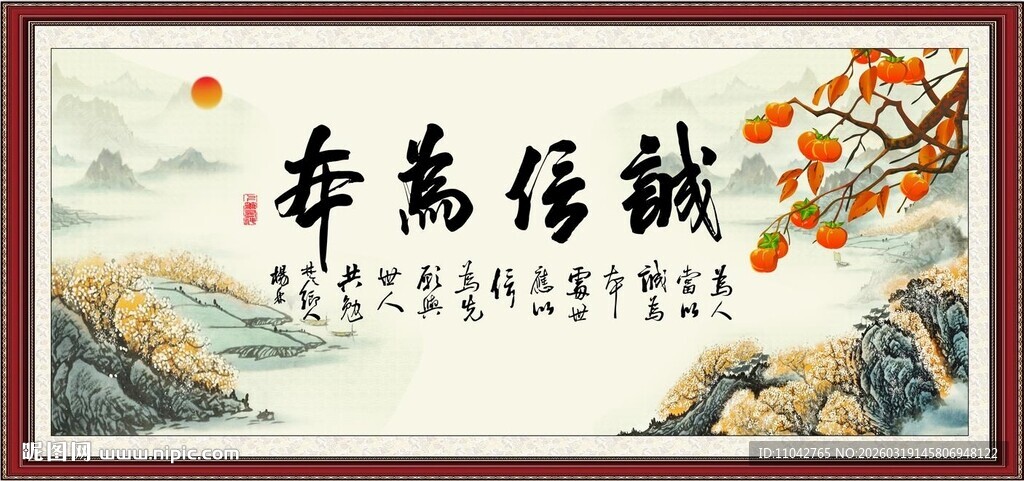 誠信為本
為人
當以
誠為
本
處世
應以
信
為先
願與
世人
共勉
昵图网 www.nipic.com
ID:11042765 NO:20260319145806948122